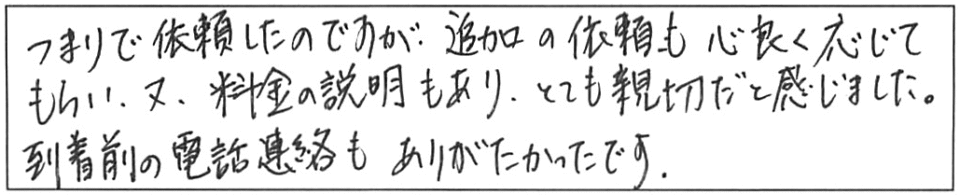 つまりで依頼したのですが、追加の依頼も心良く応じて
もらい、又、料金の説明もあり、とても親切だと感じました。
到着前の電話連絡もありがたかったです.